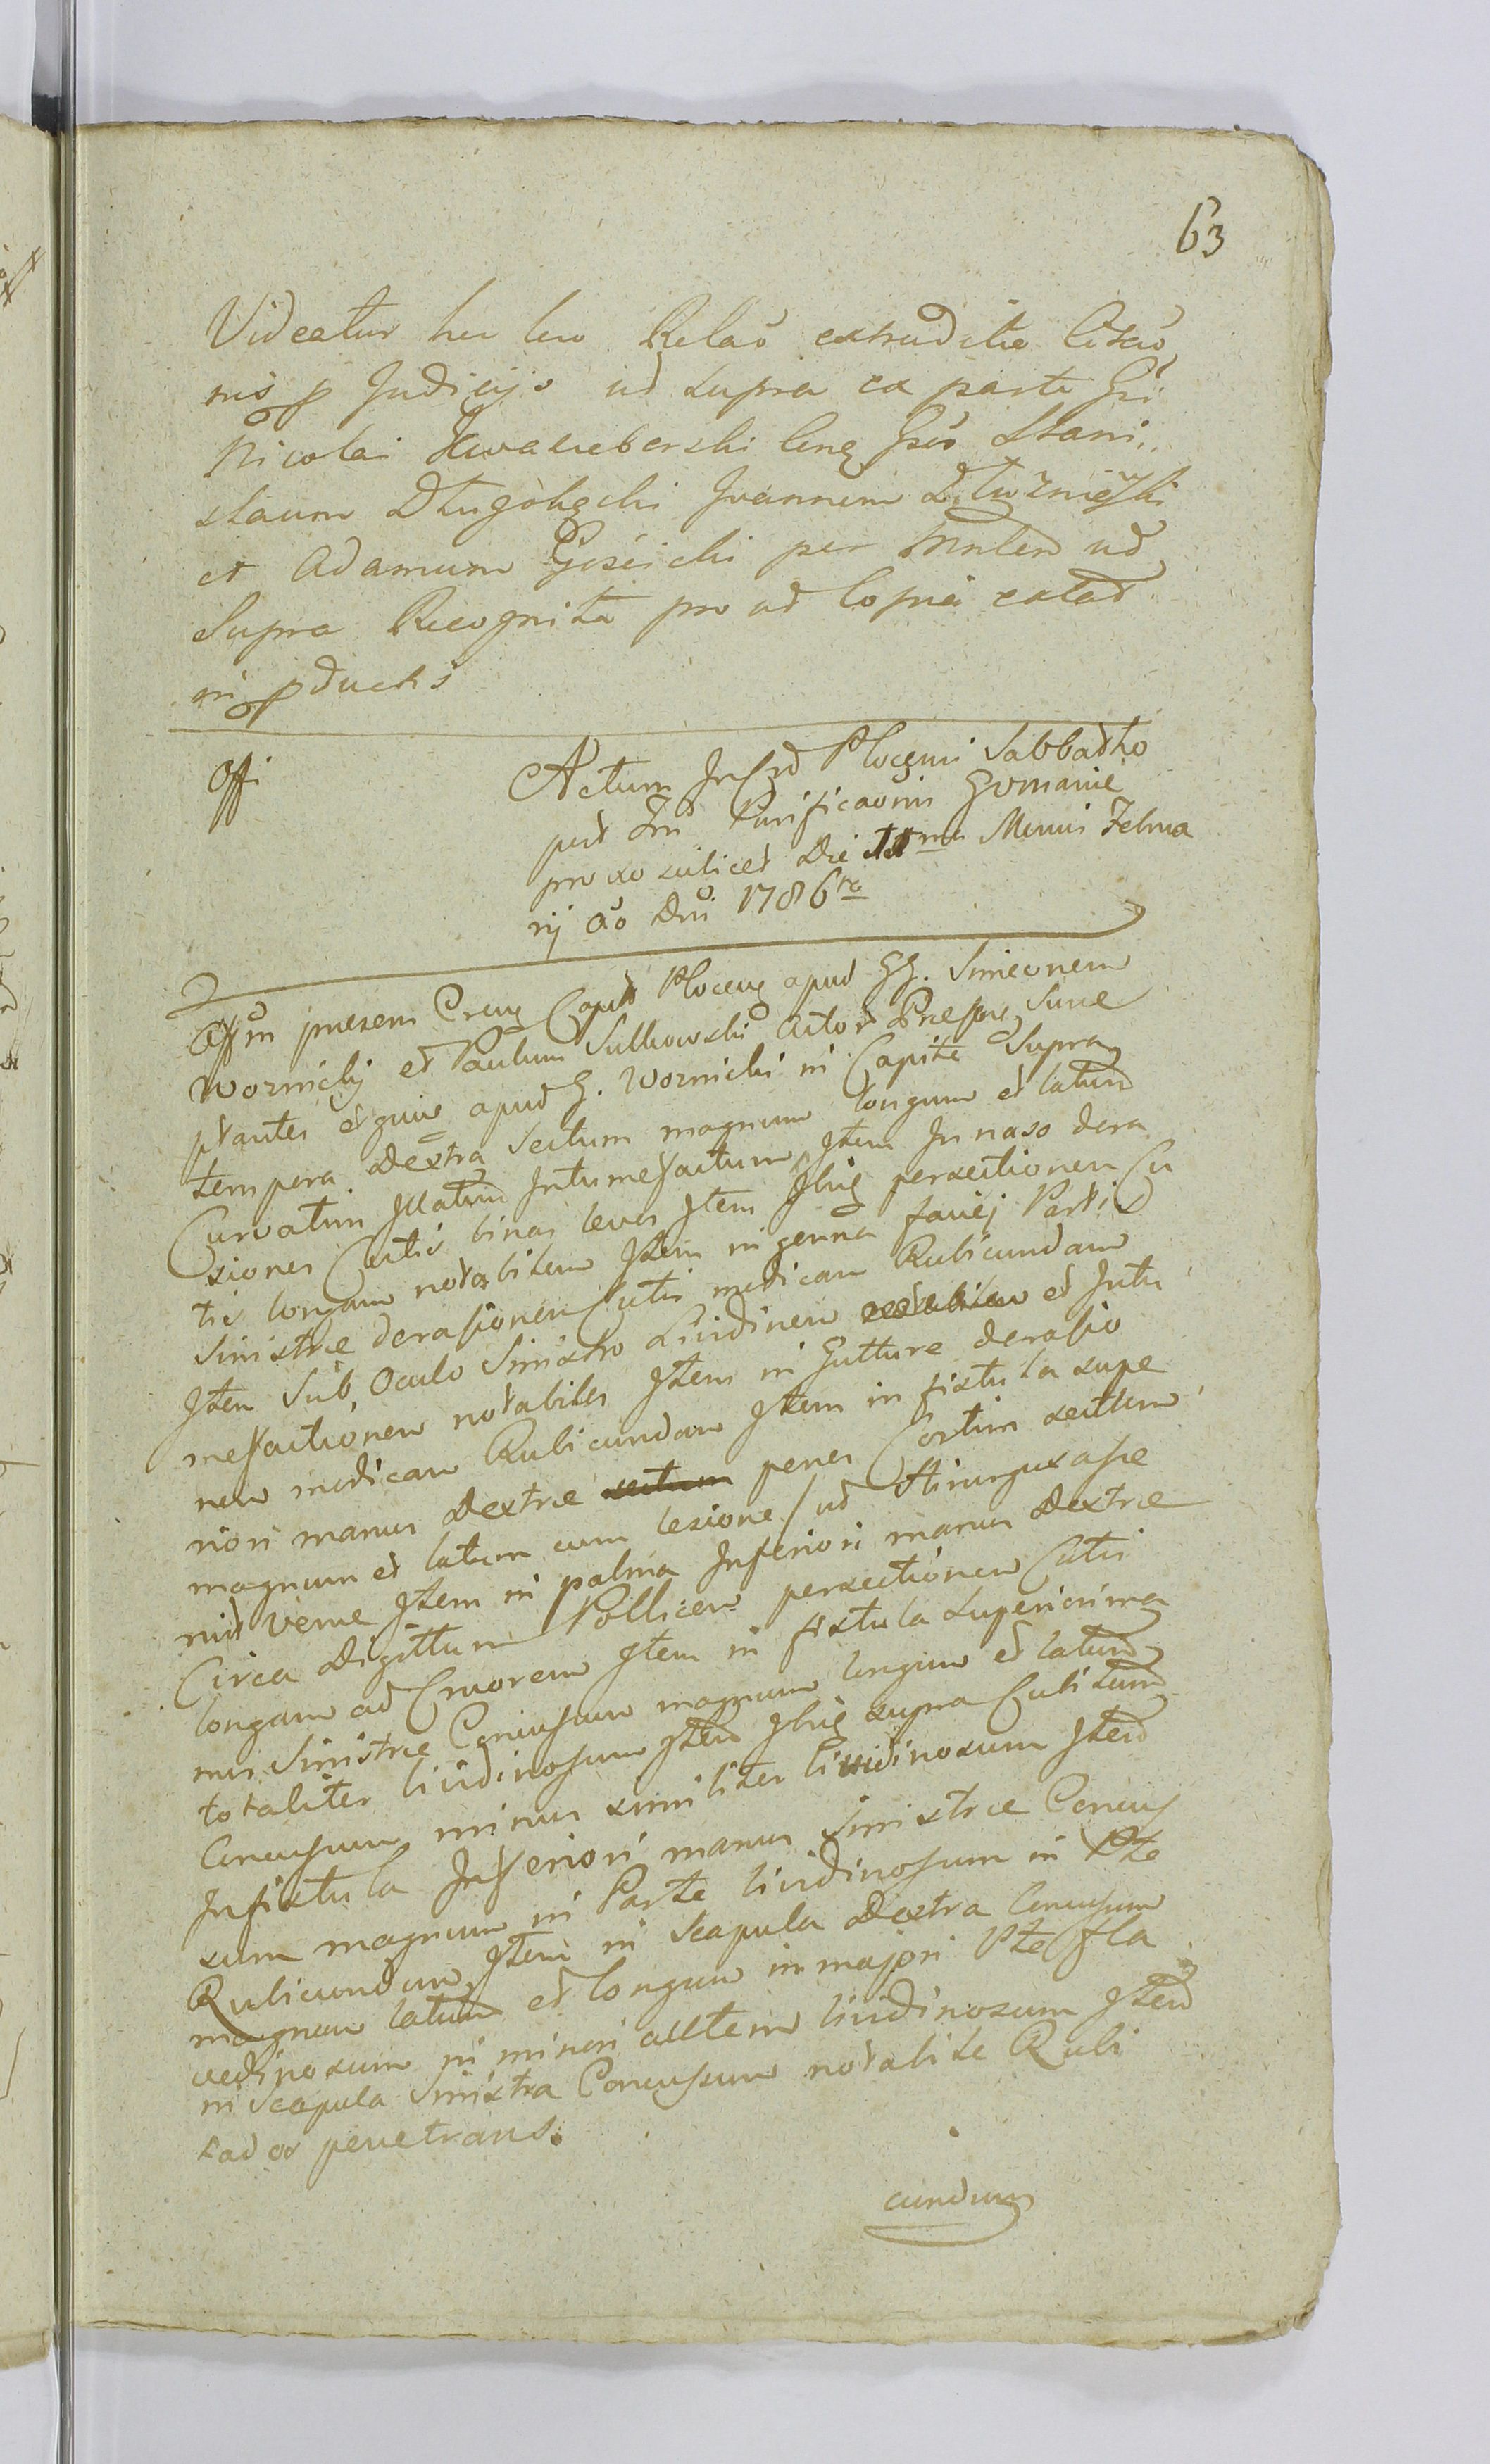 63
Videatur hic loco Relaõ extraditæ Citaõ
nis p Judicijs ut supra ex parte Gsi
Nicolai Kwasieborski Cnẽ Gsos Stani„
slaum Długołęcki Joannem Dłużniewski
et Adamum Gościcki per Mnlem ut
Supra Recognita pro ut Copia extat
in pductis
Offi Actum In Crd Plocẽnsi Sabbatho
post Fm Purificaõnis Gvmariæ
proxo scilicet Die ma Mensis Februa
rij Aõ Dni 1786to
Offm præsens Crens Captle Plocens apud GG. Simeonem
Woznicky et Paulum Sulkowski Actor Præsens Suue
ptantes et quia apud G. Woznicki in Capite Supra
tempera dextra Sectum magnum longum et latum
Curvatim Illatum Intumefactum Item In naso dera
siones Cutis binas leves Item Ibiq persectionem Cu
tis longam notabilem Item in genna faciej Partis
Sinistræ derasionem Cutis modicam Rubicundam
Item Sub Oculo Sinistro Lividinem et Intu
mefactionem notabiles Item in Gutture derasio
nem modicam Rubicundam Item in fistula supe
riori manus Dextræ sectum penes Cortim sectum
magnum et latum cum lesione / ut Hirurgus asse
ruit Venæ Item in palma Inferiori manus Dextræ
Circa Digittum Pollicem persectionem Cutis
longam ad Cruorem Item in fistula Superiori ma
nus Sinistræ Concussum magnum longum et latum
totaliter lividinosum Item Ibiq supra Cubitum
Concussum minus similiter lividinosum Item
In fistula Inferiori manus Sinistræ Concus
sum magnum in Parte lividinosum in Pte
Rubicundum Item in Scapula Dextra Concussum
magnum latum et longum in majori Pte fla
vedinosum in minori autem lividinosum Item
in Scapula Sinistra Concussum notabile Rubi
tad os penetrans.
cundum